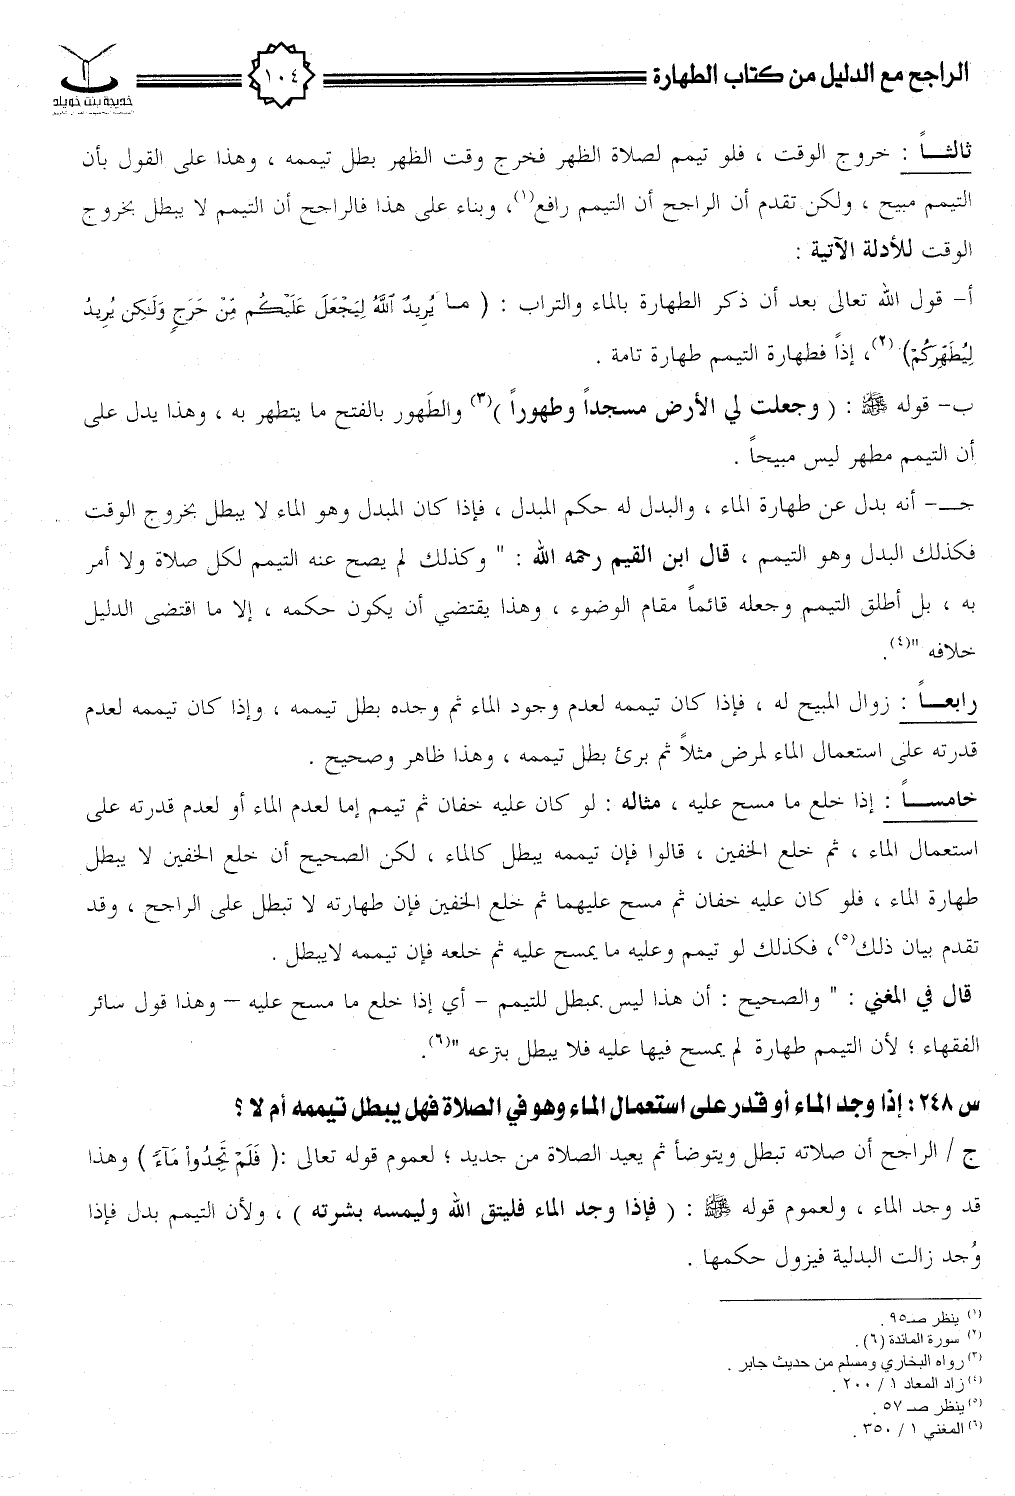 الراجح مع الدليل من كتاب الطهارة
١٠٤
خديجة بنت خويلد
ثالثـــاً : خروج الوقت ، فلو تيمم لصلاة الظهر فخرج وقت الظهر بطل تيممه ، وهذا على القول بأن
التيمم مبيح ، ولكن تقدم أن الراجح أن التيمم رافع(١)، وبناء على هذا فالراجح أن التيمم لا يبطل بخروج
الوقت للأدلة الآتية :
أ- قول الله تعالى بعد أن ذكر الطهارة بالماء والتراب : ( مـا يُرِيدُ ٱللَّهُ لِيَجْعَلَ عَلَيْكُم مِّنْ حَرَجٍ وَلَـٰكِن يُرِيدُ
لِيُطَهِّرَكُمْ) (٢)، إذاً فطهارة التيمم طهارة تامة .
ب- قوله ﷺ : ( وجعلت لي الأرض مسجداً وطهوراً )(٣) والطَهور بالفتح ما يتطهر به ، وهذا يدل على
أن التيمم مطهر ليس مبيحاً .
جـــ- أنه بدل عن طهارة الماء ، والبدل له حكم المبدل ، فإذا كان المبدل وهو الماء لا يبطل بخروج الوقت
فكذلك البدل وهو التيمم ، قال ابن القيم رحمه الله : " وكذلك لم يصح عنه التيمم لكل صلاة ولا أمر
به ، بل أطلق التيمم وجعله قائماً مقام الوضوء ، وهذا يقتضي أن يكون حكمه ، إلا ما اقتضى الدليل
خلافه "(٤).
رابعـــاً : زوال المبيح له ، فإذا كان تيممه لعدم وجود الماء ثم وجده بطل تيممه ، وإذا كان تيممه لعدم
قدرته على استعمال الماء لمرض مثلاً ثم برئ بطل تيممه ، وهذا ظاهر وصحيح .
خامســـاً : إذا خلع ما مسح عليه ، مثاله : لو كان عليه خفان ثم تيمم إما لعدم الماء أو لعدم قدرته على
استعمال الماء ، ثم خلع الخفين ، قالوا فإن تيممه يبطل كالماء ، لكن الصحيح أن خلع الخفين لا يبطل
طهارة الماء ، فلو كان عليه خفان ثم مسح عليهما ثم خلع الخفين فإن طهارته لا تبطل على الراجح ، وقد
تقدم بيان ذلك(٥)، فكذلك لو تيمم وعليه ما يمسح عليه ثم خلعه فإن تيممه لايبطل .
قال في المغني : " والصحيح : أن هذا ليس بمبطل للتيمم – أي إذا خلع ما مسح عليه – وهذا قول سائر
الفقهاء ؛ لأن التيمم طهارة لم يمسح فيها عليه فلا يبطل بنزعه "(٦).
س ٢٤٨ : إذا وجد الماء أو قدر على استعمال الماء وهو في الصلاة فهل يبطل تيممه أم لا ؟
ج / الراجح أن صلاته تبطل ويتوضأ ثم يعيد الصلاة من جديد ؛ لعموم قوله تعالى :( فَلَمْ تَجِدُوا۟ مَآءً ) وهذا
قد وجد الماء ، ولعموم قوله ﷺ : ( فإذا وجد الماء فليتق الله وليمسه بشرته ) ، ولأن التيمم بدل فإذا
وُجد زالت البدلية فيزول حكمها .
(١) ينظر صـ٩٥ .
(٢) سورة المائدة (٦).
(٣) رواه البخاري ومسلم من حديث جابر .
(٤) زاد المعاد ١ / ٢٠٠ .
(٥) ينظر صـ ٥٧ .
(٦) المغني ١ / ٣٥٠ .